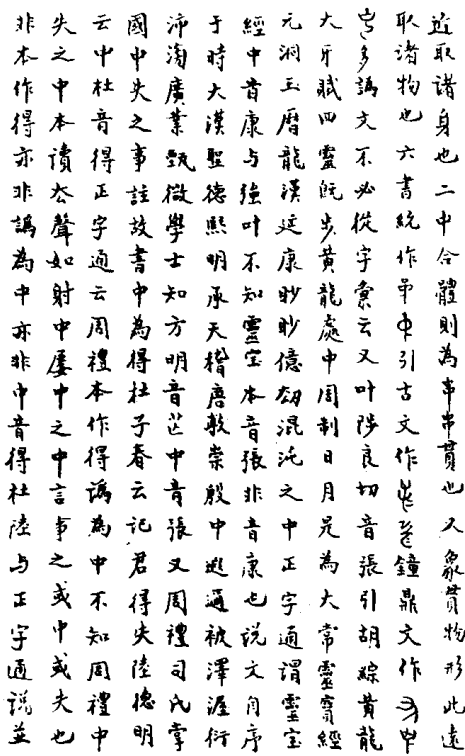 近取諸身也二中合體則為串串貫也又象貫物形此遠
取諸物也六書統作引古文作鐘鼎文作
皆多譌文不必從字彙云又叶陟良切音張引胡綜黃龍
大牙賦四靈既步黃龍處中周制日月是為大常靈寶經
元洞玉曆龍漢延康眇眇億劫混沌之中正字通謂靈宝
經中音康与強叶不知靈宝本音張非音康也說文自序
于時大漢聖德熙明承天稽唐敷崇殷中遐邇被澤渥衍
沛滂廣業甄微學士知方明音芒中音張又周禮司氏掌
國中失之事註故書中為得杜子春云記君得失陸德明
云中杜音得正字通云周禮本作得譌為中不知周禮中
失之中本讀去聲如射中屢中之中言事之或中或失也
非本作得亦非譌為中亦非中音得杜陸与正字通說並